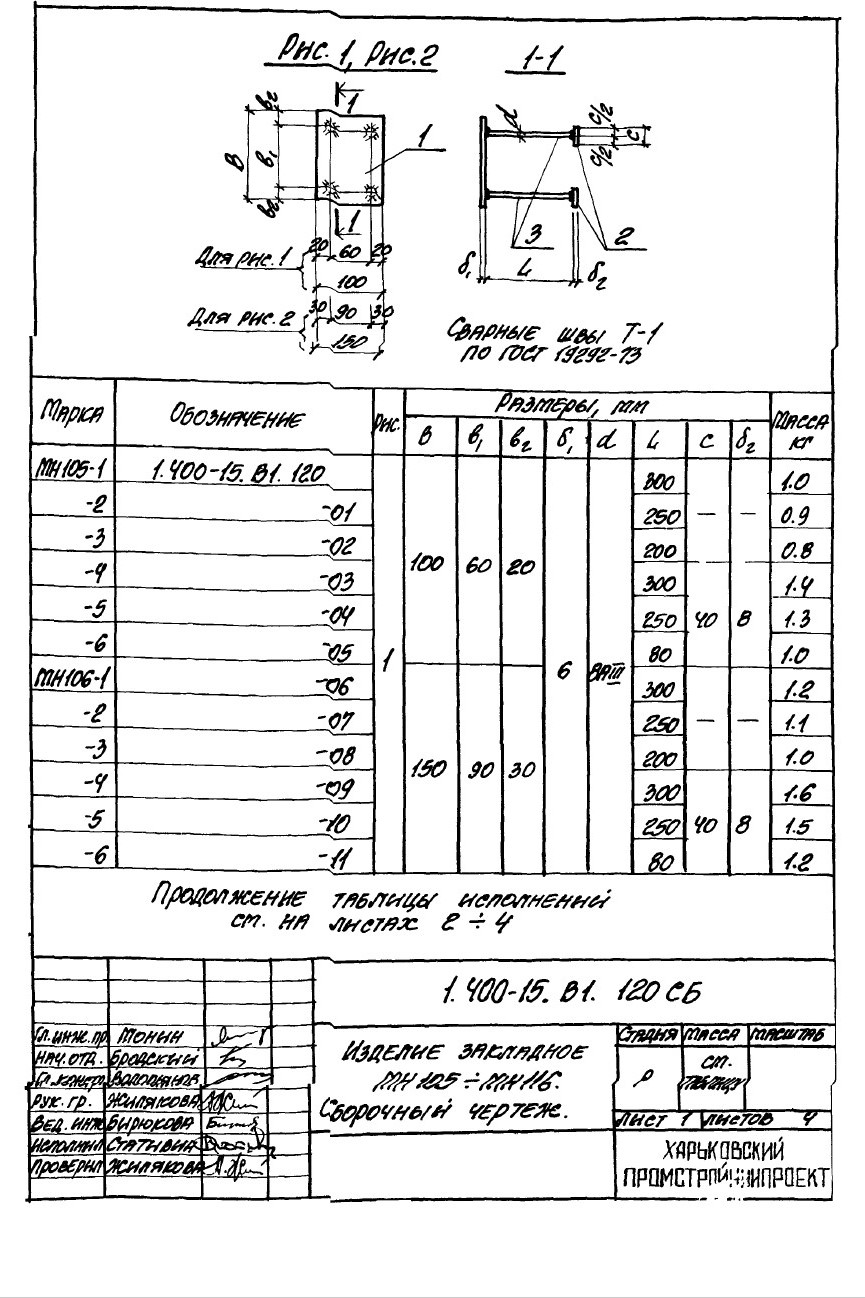 Рис. 1, Рис. 2
1-1
в2
в1
В
в2
1
1
1
d
с/2
с/2
с
3
2
δ1
L
δ2
Для рис. 1
20 60 20
100
Для рис. 2
30 90 30
150
Сварные швы Т-1
по ГОСТ 19292-73
Марка Обозначение Рис. Размеры, мм Масса кг
В в1 в2 δ1 d L с δ2
МН105-1 1.400-15.В1.120 300 1.0
-2 -01 250 — — 0.9
-3 -02 200 0.8
100 60 20
-4 -03 300 1.4
-5 -04 250 40 8 1.3
-6 -05 80 1.0
1 6 8АIII
МН106-1 -06 300 1.2
-2 -07 250 — — 1.1
-3 -08 200 1.0
150 90 30
-4 -09 300 1.6
-5 -10 250 40 8 1.5
-6 -11 80 1.2
Продолжение таблицы исполнений
см. на листах 2÷4
1.400-15.В1.120 СБ
Гл.инж.пр. Монин
Нач.отд. Бродский
Гл.констр.
Рук. гр. Жилякова
Вед. инж. Бирюкова
Исполнил
Проверил Жилякова
Изделие закладное
МН105÷МН116.
Сборочный чертеж.
Стадия Масса Масштаб
Р см. таблицу
Лист 1 Листов 4
ХАРЬКОВСКИЙ
ПРОМСТРОЙНИИПРОЕКТ